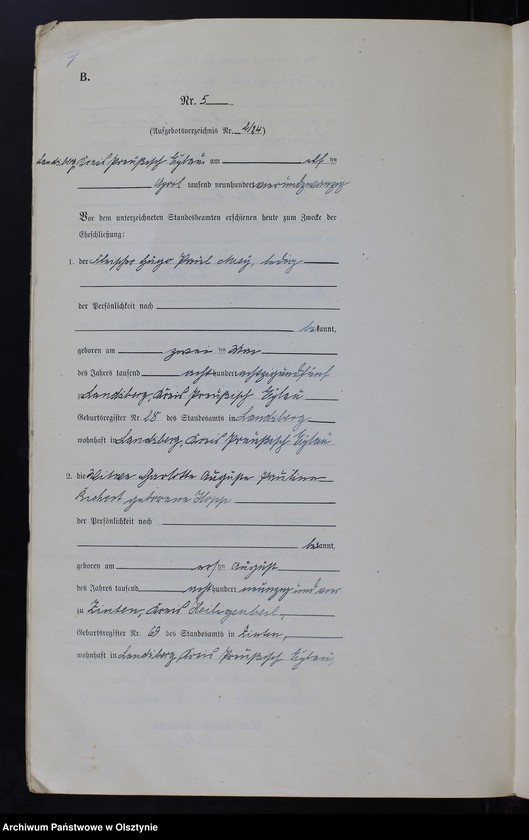 B.
Nr. 5
(Aufgebotsverzeichnis Nr. 2/24)
Landsberg, Kreis Preußisch Eylau am elf ten
April tausend neunhundert vierundzwanzig
Vor dem unterzeichneten Standesbeamten erschienen heute zum Zwecke der
Eheschließung:
1. der Fleischer Hugo Paul May, ledig
der Persönlichkeit nach
bekannt,
geboren am zwei ten Mai
des Jahres tausend acht hundert achtzigundfünf
Landsberg, Kreis Preußisch Eylau
Geburtsregister Nr. 28 des Standesamts in Landsberg
wohnhaft in Landsberg, Kreis Preußisch Eylau
2. die Witwe Charlotte Auguste Pauline
geborene Hopp
der Persönlichkeit nach
bekannt,
geboren am ersten August
des Jahres tausend acht hundert neunzig und vier
zu Zinten, Kreis Heiligenbeil,
Geburtsregister Nr. 69 des Standesamts in Zinten,
wohnhaft in Landsberg, Kreis Preußisch Eylau,
Archiwum Państwowe w Olsztynie